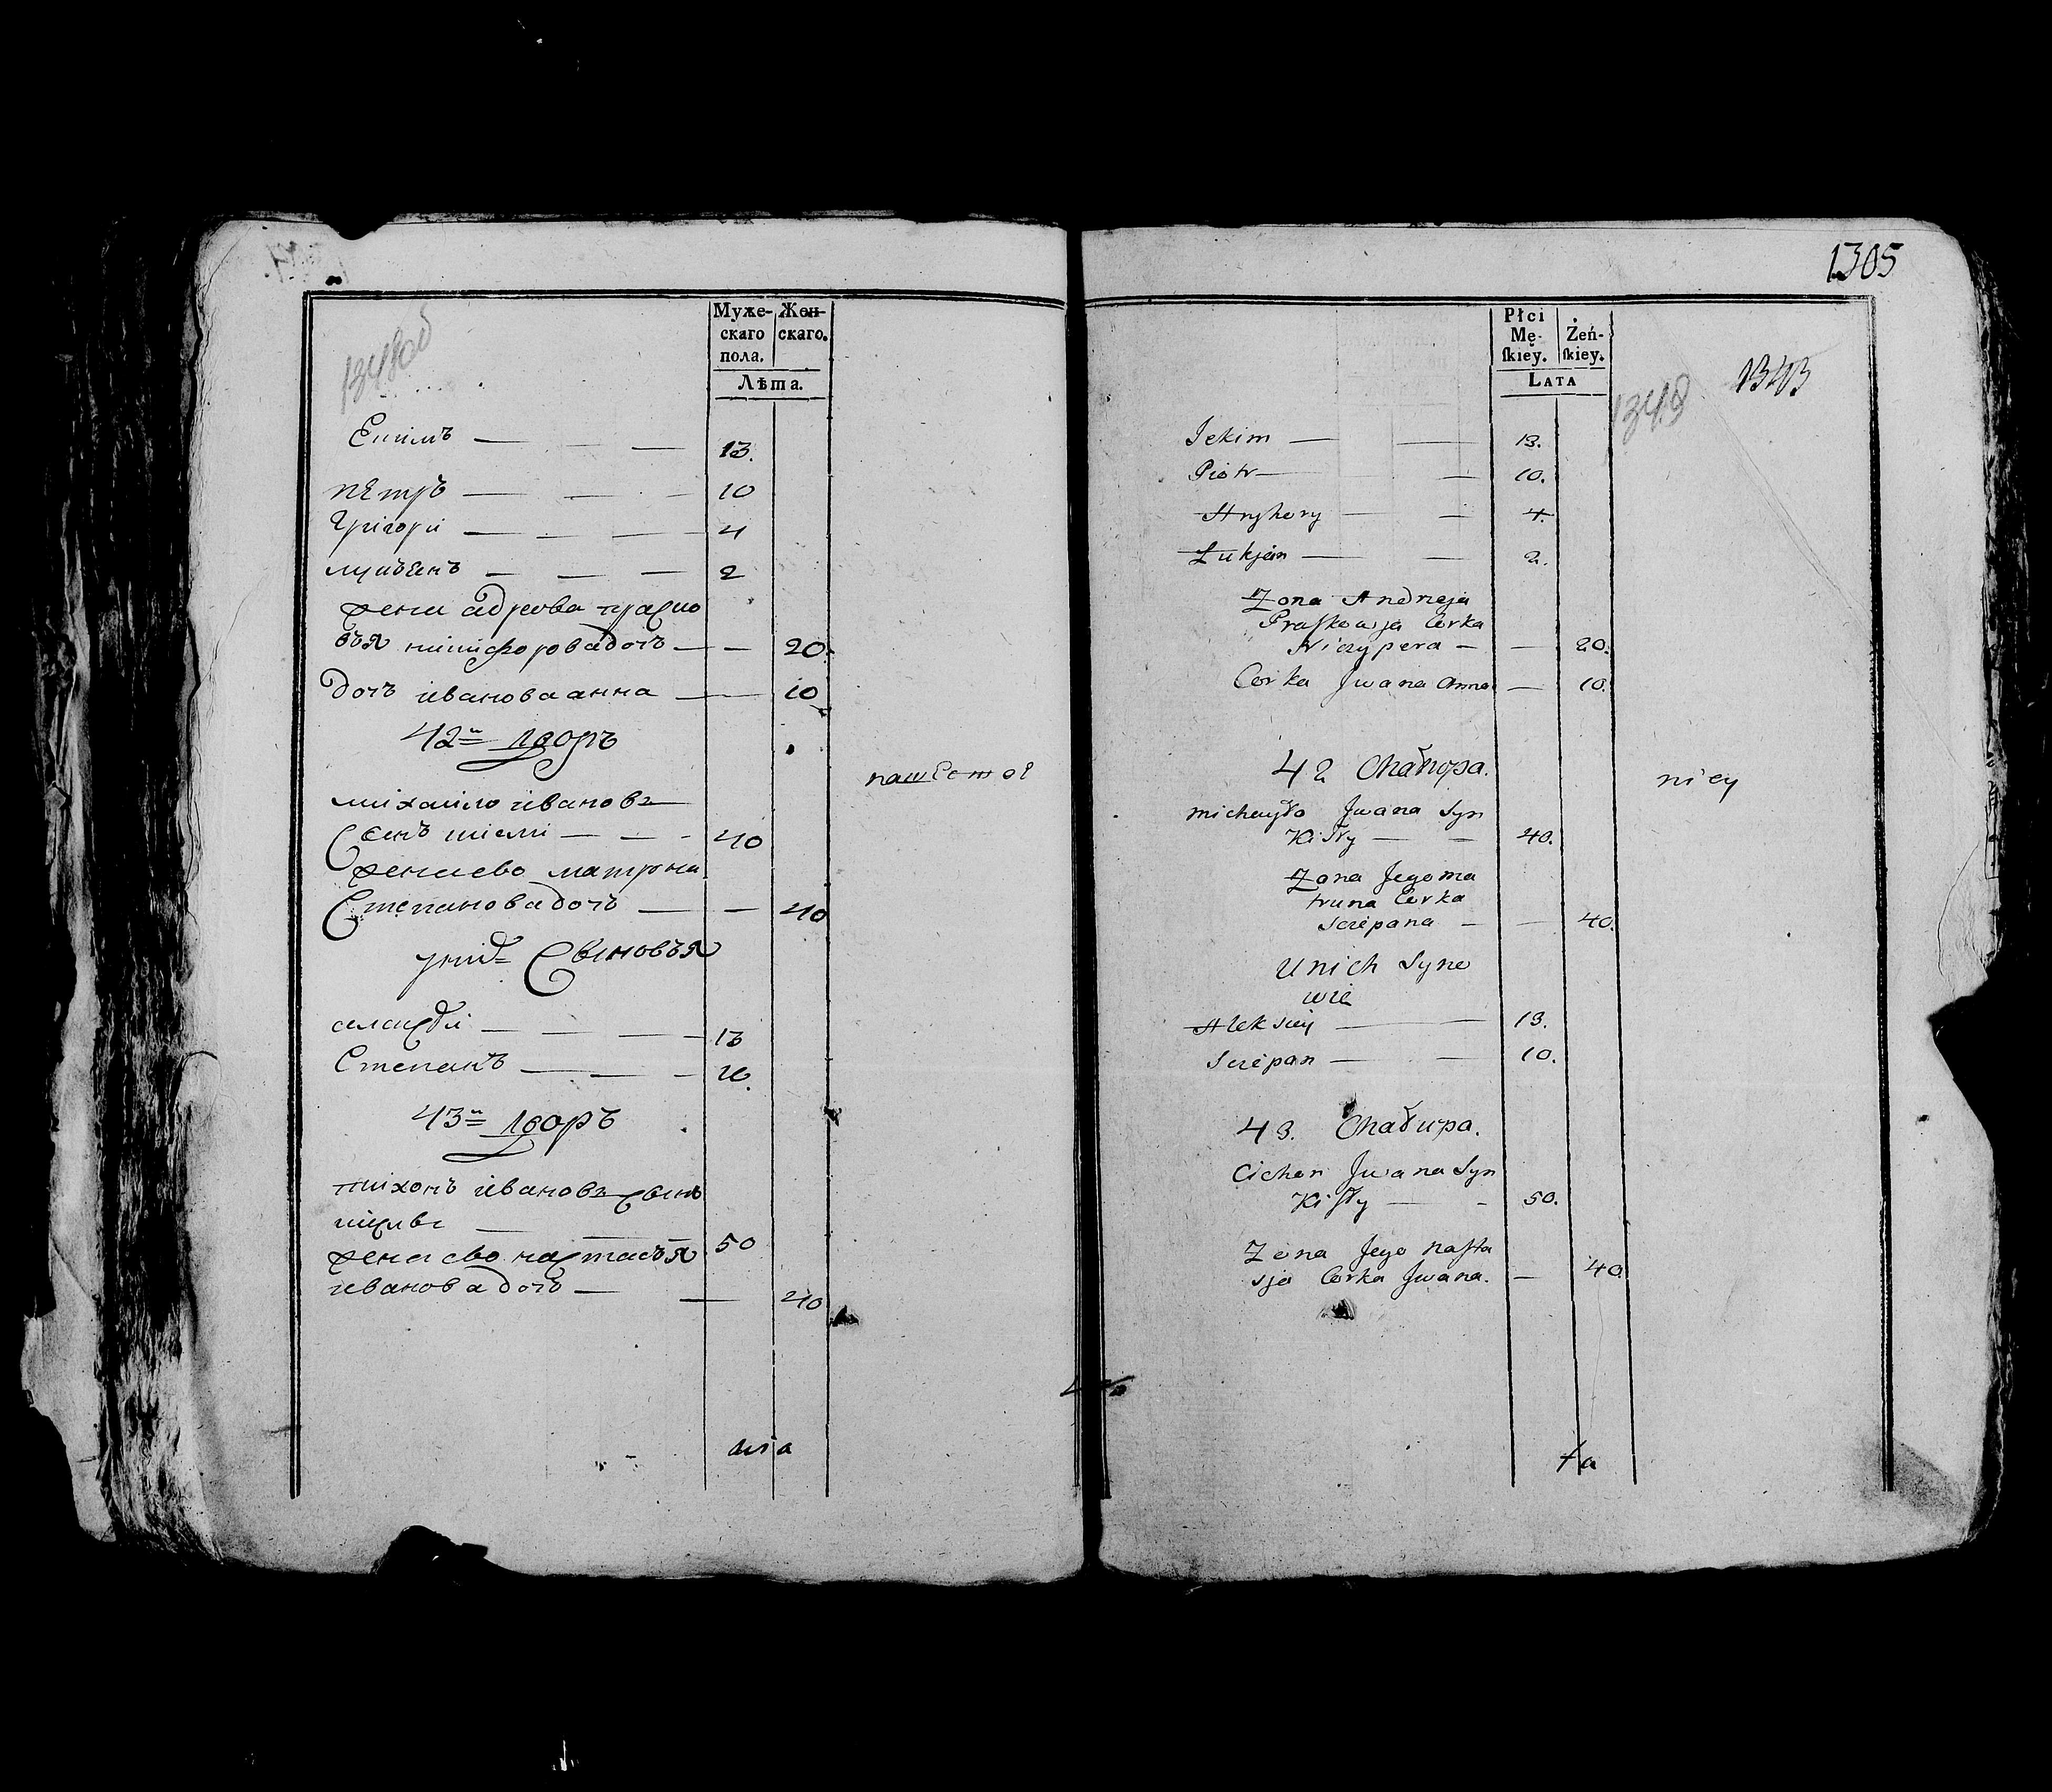 Муже-
скаго
пола.
Жен-
скаго.
Лѣта.
Екимъ — — — 13.
пЕтръ — — — 10
Григори — — — 4
лукъянъ — — — 2
жена адреова праско
вья никифоровадочь — — 20.
дочь иванова анна — 10
42й дворъ
михаило ивановъ
Сынъ — — 40
женаево матрона
Степановадочь — — 40
унихъ Сыновъя
алексѣй — — — 13
Степанъ — — — 10.
43й дворъ
тихонъ ивановъ Сынъ
— — 50
женаево настасъя
иванова дочь — — 40
1305
Płci
Mę-
ſkiey.
Żeń-
ſkiey.
LATA
1343
Jekim — — 13.
Piotr — — 10.
Hryhory — — 4.
Łukjan — — 2.
Zona Andrzeja
Praſkowja Corka
Niczypera — — 20.
Corka Jwana Anna — 10.
42 Chałupa.
nicy
Michayło Jwana Syn
Kiſły — — 40.
Zona Jego Ma
truna Corka
Sczepana — — 40.
U nich Syno
wie
Alekſiey — 13.
Sczepan — — 10.
43. Chałupa.
Cichon Jwana Syn
Kiſły — — 50.
Zona Jego Naſta
sja Corka Jwana. — 40